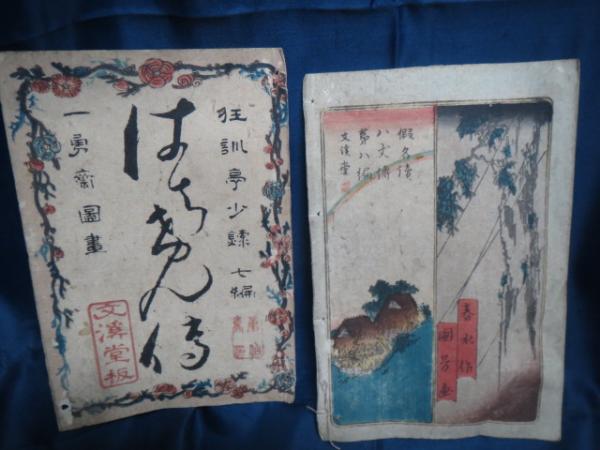 狂訓亭少録 七編
はちけん傳
一勇齋圖畫
文溪堂板
假名讀
八犬傳
第八編
文溪堂
春水作
國芳画